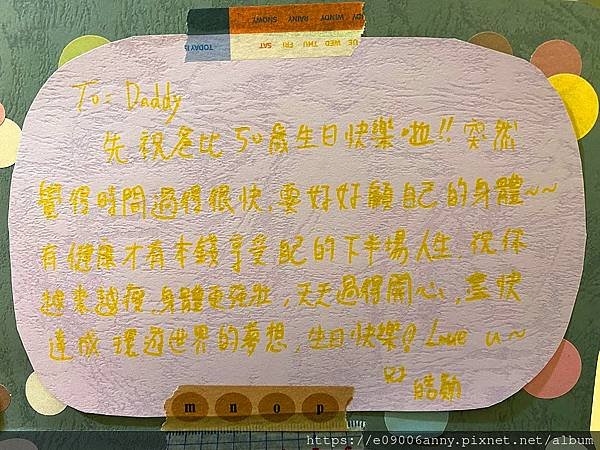 SNOWY RAINY WINDY
TODAY IS SAT FRI THU WED TUE
To: Daddy
先祝爸比50歲生日快樂啦!! 突然
覺得時間過得很快,要好好顧自己的身體~~
有健康才有本錢享受你的下半場人生,祝你
越來越瘦,身體更強壯,天天過得開心,盡快
達成環遊世界的夢想,生日快樂! Love u~
皓勛
m n o p
https://e09006anny.pixnet.net/album